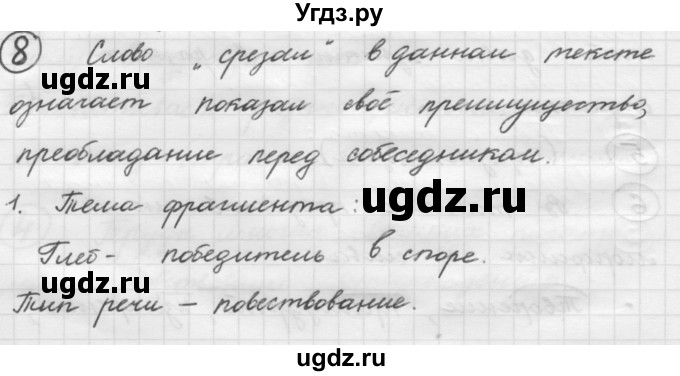 Угдз.ру
8 Слово „срезал" в данном тексте
ugdz.ru ugdz.ru
означает показал своё преимущество,
преобладание перед собеседником.
ugdz.ru
1. Тема фрагмента:
Глеб - победитель в споре.
ugdz.ru ugdz.ru
Тип речи – повествование.
ugdz.ru